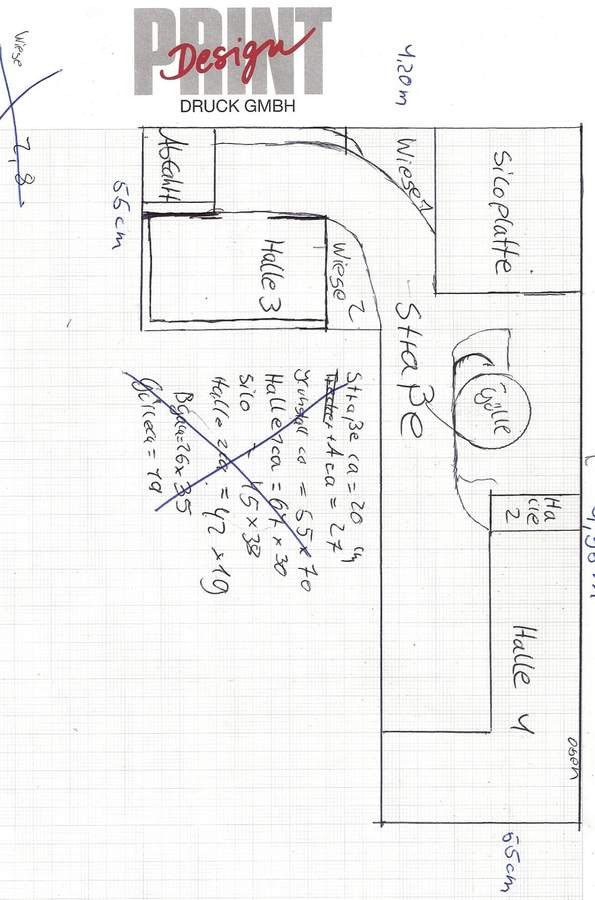 PRINT
Design
DRUCK GMBH
Wiese
2,8
4,20m
Siloplatte
Wiese 1
Abfahrt
55cm
Halle 3
Wiese 2
Straße
Gülle
Halle 2
Halle 4
osen
55cm
Straße ca = 20 cm
+ A ca = 27
ca = 55 x 70
Halle 1 ca = 67 x 30
Silo = 45 x 38
Halle 2 ca = 42 x 19
= 26 x 35
ca = 19